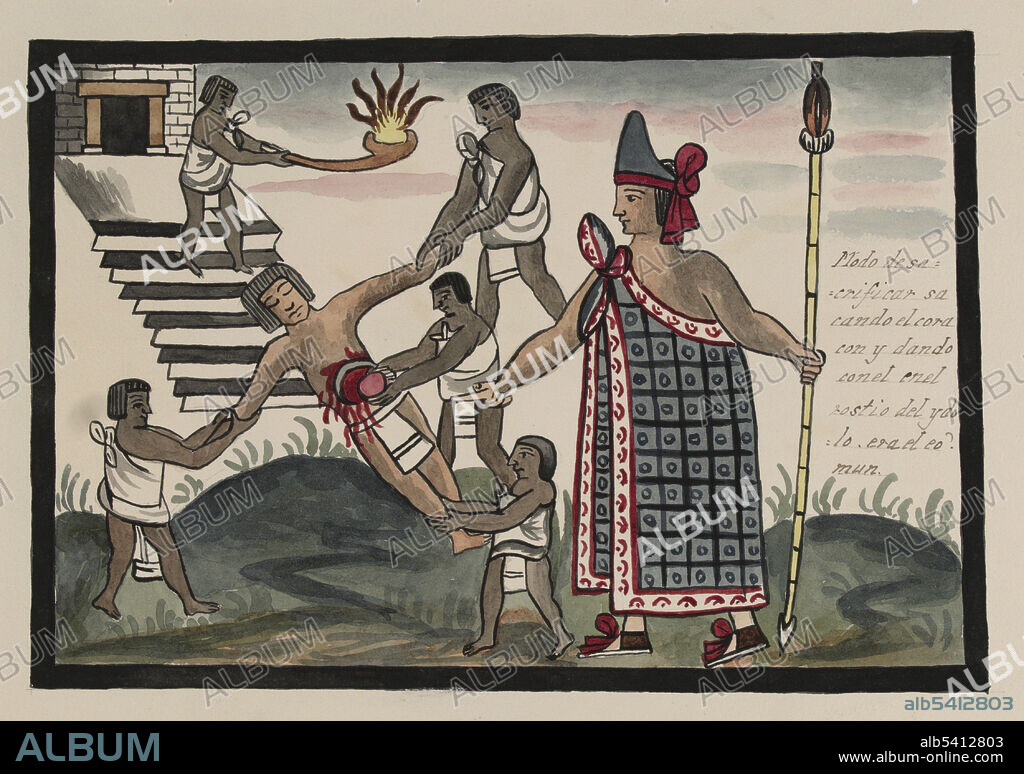 Modo de sa=
=crificar sa
cando el cora
con y dando
con el en el
rostio del ydo
=lo. era el co?
mun.
alb5412803
ALBUM
alb5412803
www.album-online.com